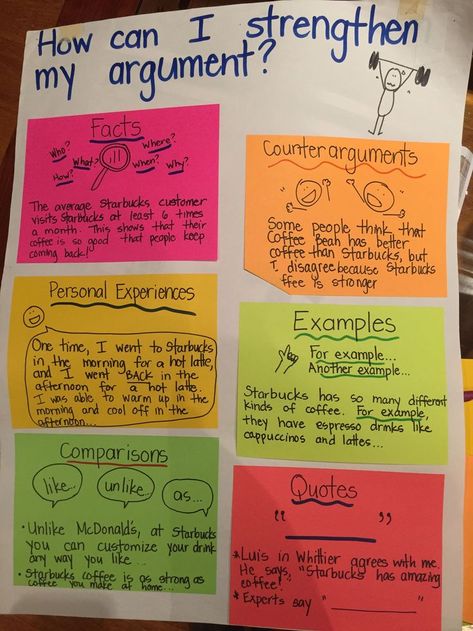 How can I strengthen
my argument?
Facts
Who?
What?
Where?
How?
When?
Why?
The average Starbucks customer
visits Starbucks at least 6 times
a month. This shows that their
coffee is so good that people keep
coming back!
Counterarguments
Some people think that
Coffee Bean has better
coffee than Starbucks, but
I disagree because Starbucks
ffee is stronger
Personal Experiences
One time, I went to Starbucks
in the morning for a hot latte,
and I went BACK in the
afternoon for a hot latte.
I was able to warm up in the
morning and cool off in the
afternoon...
Examples
For example...
Another example...
Starbucks has so many different
kinds of coffee. For example,
they have espresso drinks like
cappuccinos and lattes...
Comparisons
like...
unlike...
as...
• Unlike McDonald's, at Starbucks
you can customize your drink
any way you like...
• Starbucks coffee is as strong as
coffee you make at home...
Quotes
" ________ "
* Luis in Whittier agrees with me.
He says, "Starbucks has amazing
coffee!
* Experts say "________"